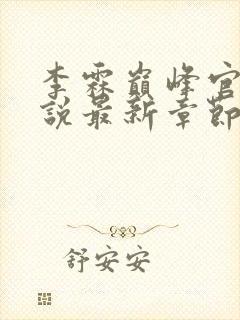 李霖巅峰官
说最新章節
舒安安